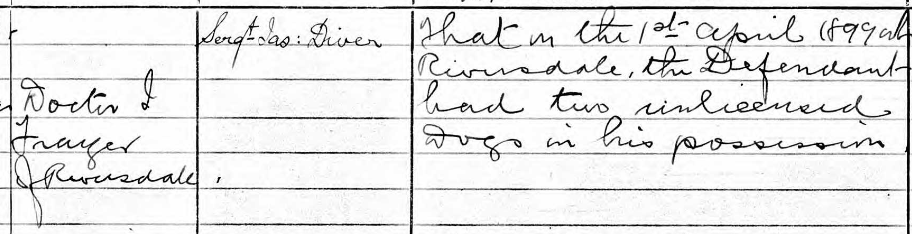 Sergt Jas: Diver
That on the 1st April 1899 at
Riversdale, the Defendant
Doctor J
had two unlicensed
Frayer
Dogs in his possession
J Riversdale